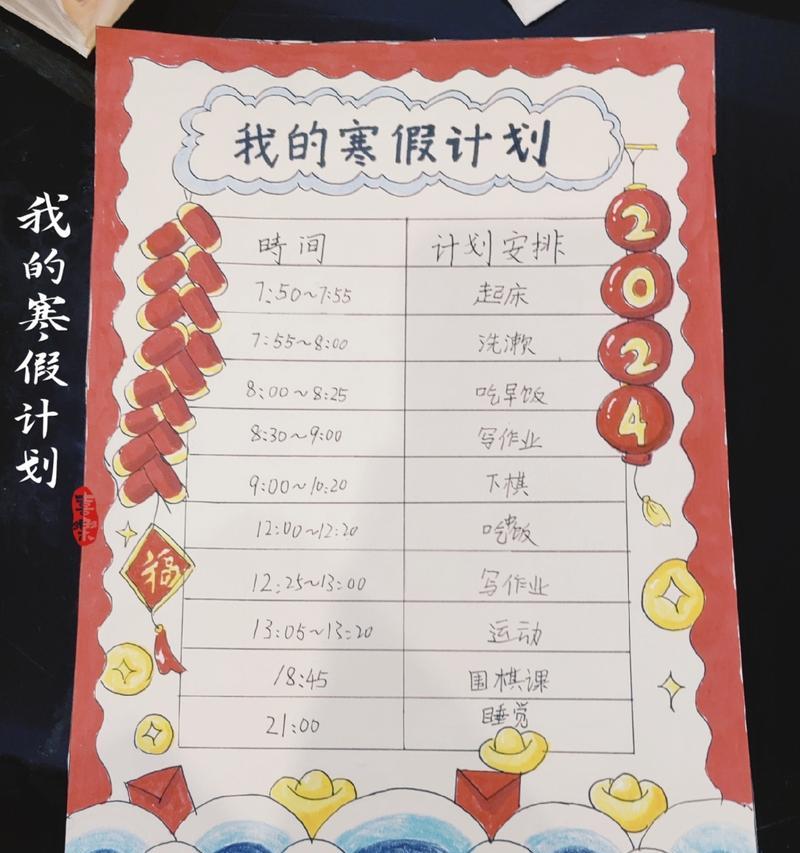 我的寒假计划
時间 计划安排
7:50~7:55 起床
7:55~8:00 洗漱
8:00~8:25 吃早饭
8:30~9:00 写作业
9:00~10:20 下棋
12:00~12:20 吃饭
12:25~13:00 写作业
13:05~13:20 运动
18:45 围棋课
21:00 睡觉
2024
福
我的寒假计划
喜樂